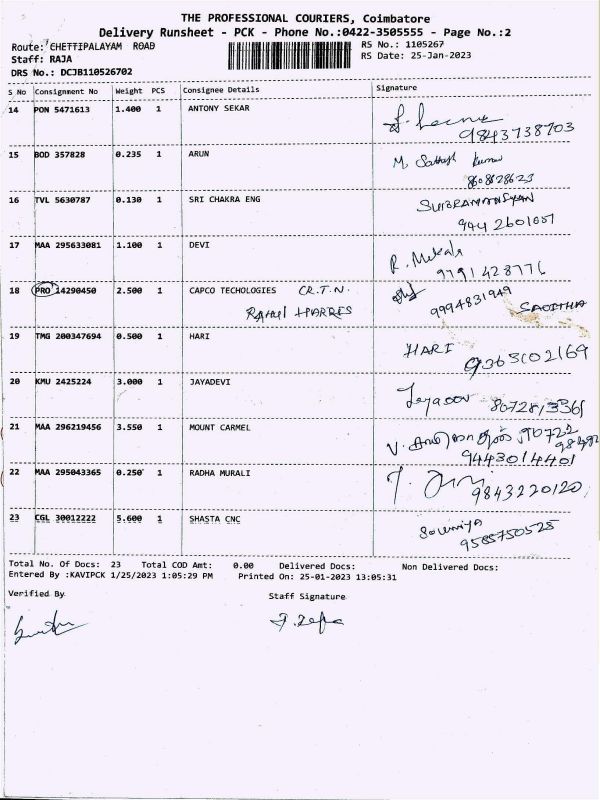 THE PROFESSIONAL COURIERS, Coimbatore
Delivery Runsheet - PCK - Phone No.:0422-3505555 - Page No.:2
Route: CHETTIPALAYAM ROAD RS No.: 1105267
Staff: RAJA RS Date: 25-Jan-2023
DRS No.: DCJB110526702
S No Consignment No Weight PCS Consignee Details Signature
14 PON 5471613 1.400 1 ANTONY SEKAR
9843738703
15 BOD 357828 0.235 1 ARUN M. Sathish Kumar
8608628623
16 TVL 5630787 0.130 1 SRI CHAKRA ENG SUBRAMANIYAN
9442601657
17 MAA 295633081 1.100 1 DEVI R. Mekala
9791428776
18 PRO 14290450 2.500 1 CAPCO TECHOLOGIES C.R.T.N. 9994831949
RAHUL HARRES
19 TMG 200347694 0.500 1 HARI HARI 9363102169
20 KMU 2425224 3.000 1 JAYADEVI 8072813361
21 MAA 296219456 3.550 1 MOUNT CARMEL V.
9443014401
22 MAA 295043365 0.250 1 RADHA MURALI
9843220120
23 CGL 30012222 5.600 1 SHASTA CNC Sowmiya
9585750525
Total No. Of Docs: 23 Total COD Amt: 0.00 Delivered Docs: Non Delivered Docs:
Entered By :KAVIPCK 1/25/2023 1:05:29 PM Printed On: 25-01-2023 13:05:31
Verified By Staff Signature